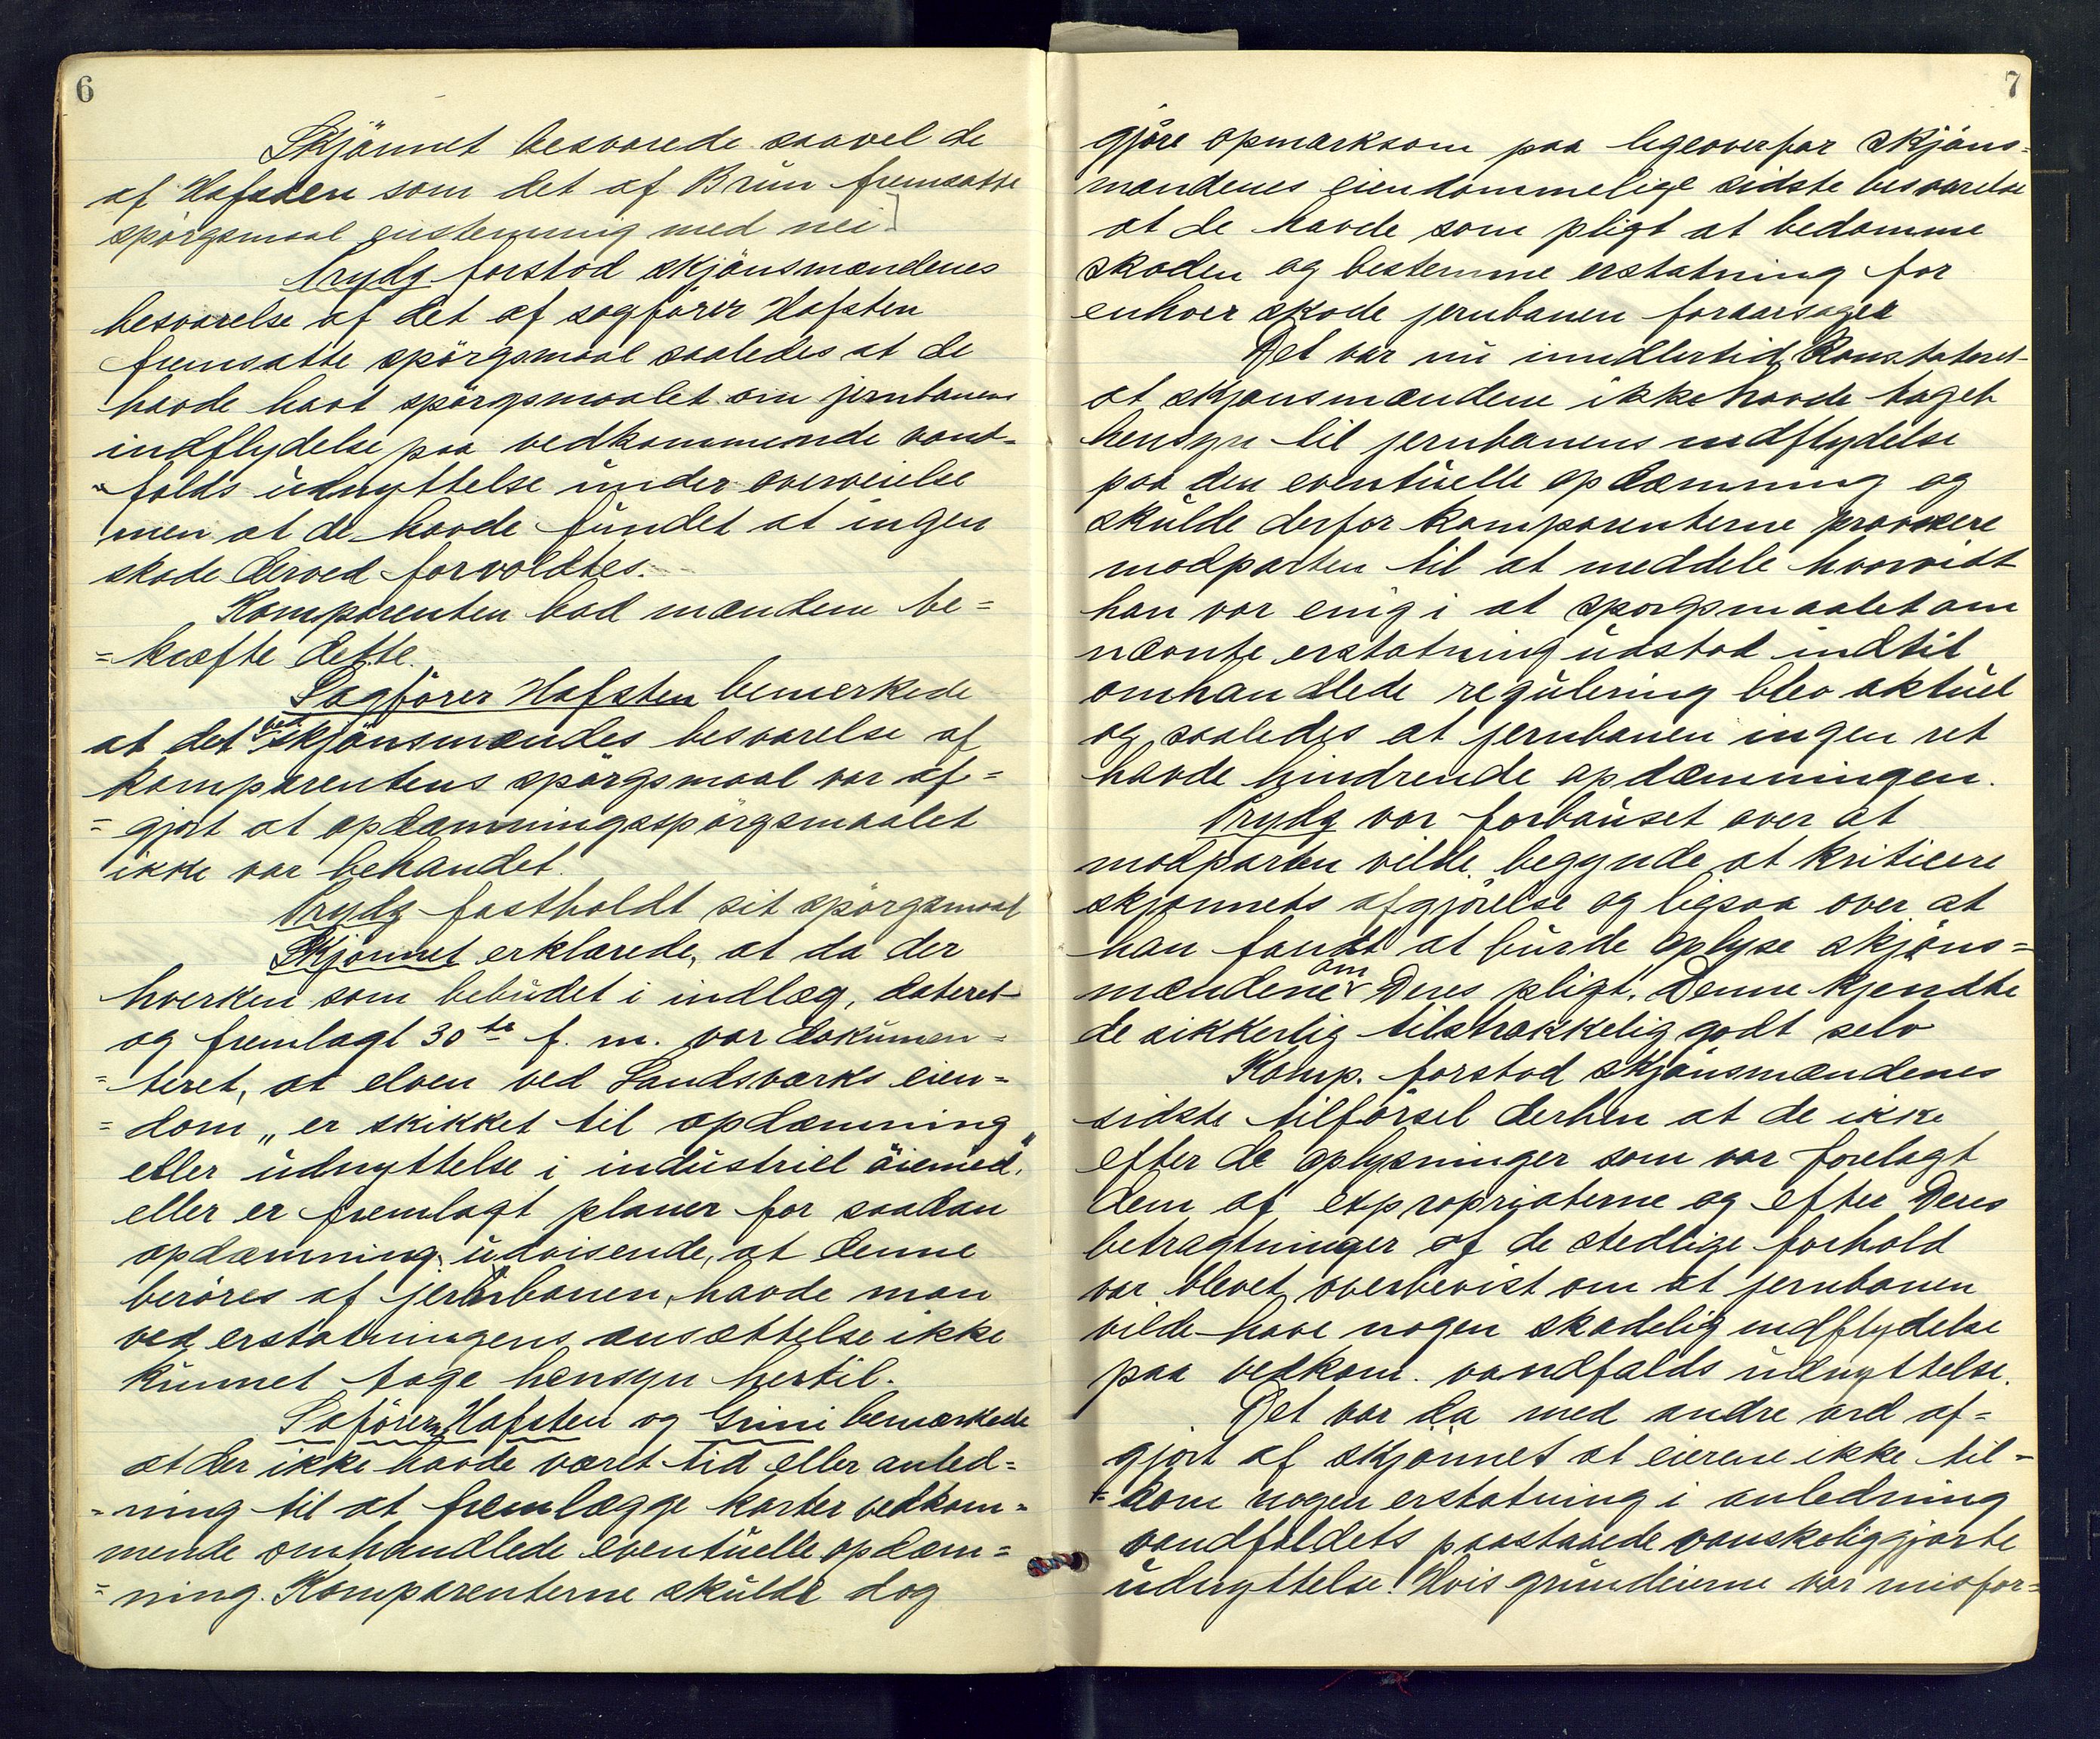 6
Skjönnet besvarede saavel de
af Hafsten som det af Brun fremsatte
spörgsmaal enstemmig med nei.
Trydg forstod skjönsmændenes
besvarelse af det af sagförer Hafsten
fremsatte spörgsmaal saaledes at de
havde havt spörgsmaalet om jernbanens
indflydelse paa vedkommende vand-
falds udnyttelse under overveielse
men at de havde fundet at ingen
skade derved forvoldtes.
Komparenten bad mændene be=
=kræfte dette.
Sagförer Hafsten bemerkede
at det ved skjönsmændes besvarelse af
komparentens spörgsmaal var af=
=gjort at opdæmningsspörgsmaalet
ikke var behandet.
Trydg fastholdt sit spörgsmaal
Skjönnet erklærede, at da der
hverken som bebudet i indlæg, dateret
og fremlagt 30te f. m. var dokumen=
=teret, at elven ved Landsværks eien=
=dom „er skikket til opdæmning
eller udnyttelse i industriel öiemed"
eller er fremlagt planer for saadan
opdæmning udvisende, at denne
beröres af jernbanen, havde man
ved erstatningens ansættelse ikke
kunnet tage hensyn hertil.
Saförerne Hafsten og Grini bemærkede
at der ikke havde været tid eller anled=
=ning til at fremlægge karter vedkom=
mende omhandlede eventuelle opdæm=
=ning. Komparenterne skulde dog
7
gjöre opmærksom paa ligeoverfor skjöns=
mændenes eiendommelige sidste besvarelse
at de havde som pligt at bedömme
skaden og bestemme erstatning for
enhver skade jernbanen foraarsager
Det var nu imidlertid konstateret
at skjönsmændene ikke havde taget
hensyn til jernbanens indflydelse
paa den eventuelle opdæmning og
skulde derfor komparenterne provosere
modparten til at meddele hvorvidt
han var enig i at spørgsmaalet om
nævnte erstatning udstod indtil
omhandlede regulering blev aktuel
og saaledes at jernbanen ingen ret
havde hindrende opdæmningen.
Trydg var forbauset over at
modparten vilde begynde at kriticere
skjönnets afgjörelse og ligsaa over at
han fandt at burde oplyse skjöns=
mændene om Deres pligt. Denne kjendte
de sikkerlig tilstrækkelig godt selv
Komp. forstod skjönsmændenes
sidste tilförsel derhen at de ikke
efter de oplysninger som var forelagt
dem af expropriaterne og efter Deres
betragtninger af de stedlige forhold
var blevet overbevist om at jernbanen
vilde have nogen skadelig indflydelse
paa vedkom. vandfalds udnyttelse.
Det var da med andre ord af=
gjort af skjönnet at eierne ikke til=
=kom nogen erstatning i anledning
vandfaldets paastaaede vanskeliggjorte
udnyttelse. Hvis grundeierne var misfor=